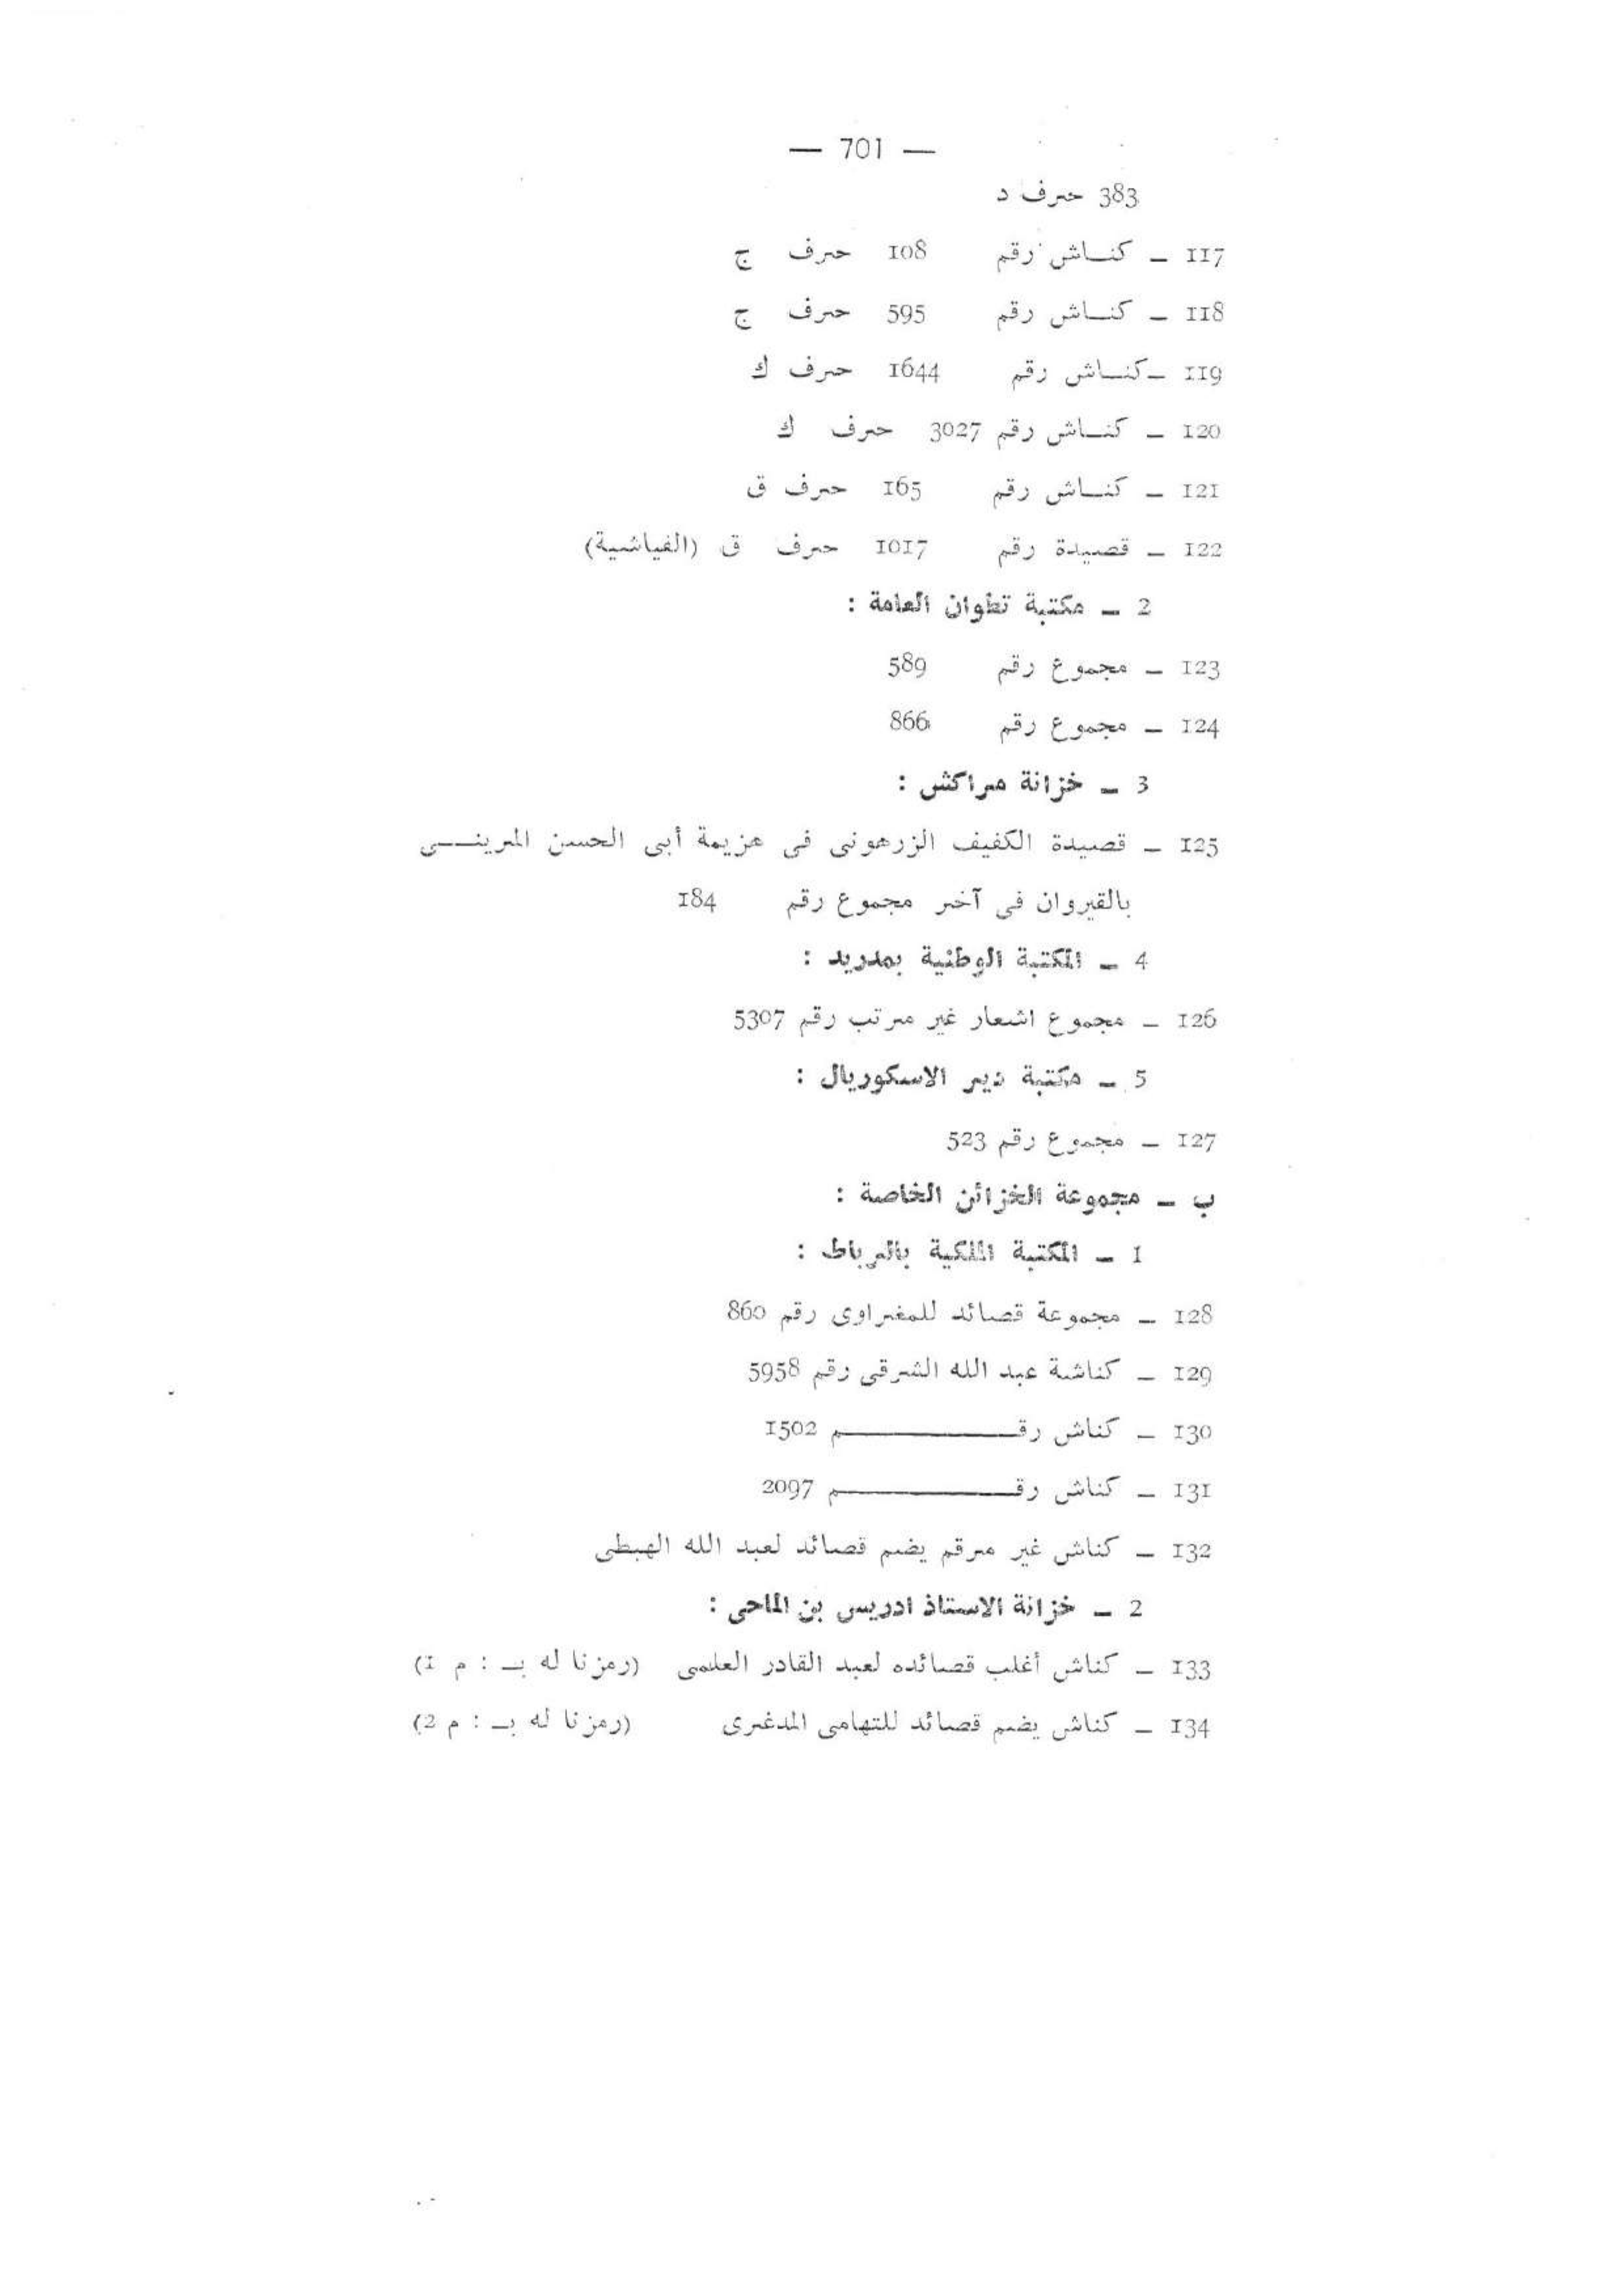 — 701 —
383 حرف د
117 — كنــاش رقم 108 حرف ج
118 — كنــاش رقم 595 حرف ج
119 —كنــاش رقم 1644 حرف ك
120 — كنــاش رقم 3027 حرف ك
121 — كنــاش رقم 165 حرف ق
122 — قصيدة رقم 1017 حرف ق (الفياشية)
2 — مكتبة تطوان العامة :
123 — مجموع رقم 589
124 — مجموع رقم 866
3 — خزانة مراكش :
125 — قصيدة الكفيف الزرهونى فى هزيمة أبى الحسن المرينــــى
بالقيروان فى آخر مجموع رقم 184
4 — المكتبة الوطنية بمدريد :
126 — مجموع اشعار غير مرتب رقم 5307
5 — مكتبة دير الاسكوريال :
127 — مجموع رقم 523
ب — مجموعة الخزائن الخاصة :
1 — المكتبة الملكية بالرباط :
128 — مجموعة قصائد للمغراوى رقم 860
129 — كناشة عبد الله الشرقى رقم 5958
130 — كناش رقــــــــــــم 1502
131 — كناش رقــــــــــــم 2097
132 — كناش غير مرقم يضم قصائد لعبد الله الهبطى
2 — خزانة الاستاذ ادريس بن الماحى :
133 — كناش أغلب قصائده لعبد القادر العلمى (رمزنا له بــ : م 1)
134 — كناش يضم قصائد للتهامى المدغرى (رمزنا له بــ : م 2)